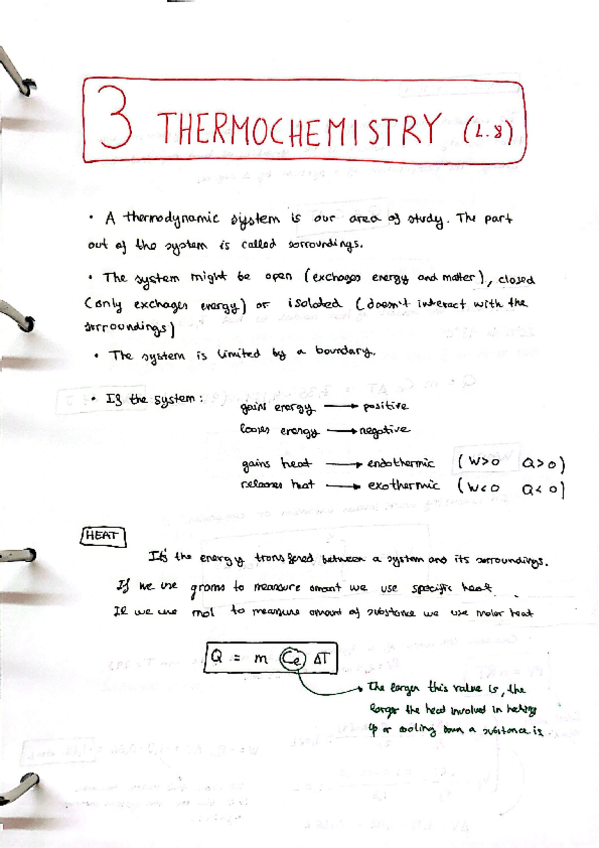 3 THERMOCHEMISTRY (L.8)
• A thermodynamic system is our area of study. The part
out of the system is called sorroundings.
• The system might be open (exchages energy and matter), closed
(only exchages energy) or isolated (doesn't interact with the
sorroundings)
• The system is limited by a boundary.
• If the system:
gains energy → positive
looses energy → negative
gains heat → endothermic (W>0 Q>0)
releases heat → exothermic (W<0 Q<0)
HEAT
It's the energy transfered between a system and its sorroundings.
If we use grams to measure amount we use specific heat.
If we use mol to measure amount of substance we use molar heat
Q = m Ce ΔT
→ the larger this value is, the
larger the heat involved in heating
up or cooling down a substance is.